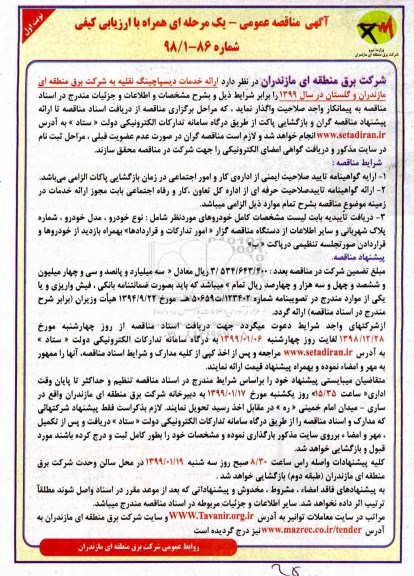 نوبت اول
آگهی مناقصه عمومی – یک مرحله ای همراه با ارزیابی کیفی
شماره ۸۶-۹۸/۱
وزارت نیرو
شرکت برق منطقه ای مازندران
شرکت برق منطقه ای مازندران در نظر دارد ارائه خدمات دیسپاچینگ نقلیه به شرکت برق منطقه ای
مازندران و گلستان در سال ۱۳۹۹ را برابر شرایط ذیل و بشرح مشخصات و اطلاعات و جزئیات مندرج در اسناد
مناقصه به پیمانکار واجد صلاحیت واگذار نماید . که مراحل برگزاری مناقصه از دریافت اسناد مناقصه تا ارائه
پیشنهاد مناقصه گران و بازگشایی پاکت از طریق درگاه سامانه تدارکات الکترونیکی دولت « ستاد » به آدرس
www.setadiran.ir انجام خواهد شد و لازم است مناقصه گران در صورت عدم عضویت قبلی ، مراحل ثبت نام
در سایت مذکور و دریافت گواهی امضای الکترونیکی را جهت شرکت در مناقصه محقق سازند.
شرایط مناقصه :
۱- ارایه گواهینامه تایید صلاحیت ایمنی از اداره‌ی کار و امور اجتماعی در زمان بازگشایی پاکات الزامی می‌باشد.
۲- ارائه گواهینامه تاییدصلاحیت حرفه ای از اداره کل تعاون ،کار و رفاه اجتماعی بابت مجوز ارائه خدمات در
زمینه موضوع مناقصه بشرح تمام موارد ذیل الزامی میباشد.
۳- دریافت تأییدیه بابت لیست مشخصات کامل خودروهای موردنظر شامل : نوع خودرو ، مدل خودرو ، شماره
پلاک شهربانی و سایر اطلاعات از دستگاه مناقصه گزار « امور تدارکات و قراردادها» بهمراه بازدید از خودروها و
قراردادن صورتجلسه تنظیمی درپاکت «ب»
پیشنهاد مناقصه.
مبلغ تضمین شرکت در مناقصه بعدد : ۳/۵۳۴/۶۴۳/۴۰۰ ریال معادل « سه میلیارد و پانصد و سی و چهار میلیون
و ششصد و چهل و سه هزار و چهارصد ریال تمام » میباشد که باید بصورت ضمانتنامه بانکی ، فیش واریزی و یا
یکی از موارد مندرج در تصویبنامه شماره ۱۲۳۴۰۲/ت۵۰۶۵۹ هـ مورخ ۱۳۹۴/۹/۲۴ هیأت وزیران (برابر شرح
مندرج در اسناد مناقصه) ارائه گردد.
ازشرکتهای واجد شرایط دعوت میگردد جهت دریافت اسناد مناقصه از روز چهارشنبه مورخ
۱۳۹۸/۱۲/۲۸ لغایت روز چهارشنبه ۱۳۹۹/۰۱/۰۶ به درگاه سامانه تدارکات الکترونیکی دولت « ستاد »
به آدرس www.setadiran.ir مراجعه و پس از اخذ کپی از کلیه مدارک و شرایط اسناد مناقصه، آنها را ممهور
به مهر و امضاء نموده و بهمراه پیشنهاد قیمت ارائه نمایند.
متقاضیان میبایستی پیشنهاد خود را براساس شرایط مندرج در اسناد مناقصه تنظیم و حداکثر تا پایان وقت
اداری «ساعت ۱۵/۳۵» روز یکشنبه مورخ ۱۳۹۹/۰۱/۱۷ به دبیرخانه شرکت برق منطقه ای مازندران واقع در
ساری – میدان امام خمینی « ره » در مقابل اخذ رسید تحویل نمایند. لازم بذکراست فقط پیشنهاد شرکتهائی
که مدارک و اسناد مناقصه را از طریق درگاه سامانه تدارکات الکترونیکی دولت « ستاد » دریافت و پس از تکمیل
، مهر و امضاء برروی سایت مذکور بارگذاری نموده و مشخصات خود را بطور کامل ثبت و درج کرده باشند مورد
قبول و بازگشایی خواهد شد.
کلیه پیشنهادات واصله راس ساعت ۸/۳۰ صبح روز سه شنبه ۱۳۹۹/۰۱/۱۹ در محل سالن وحدت شرکت برق
منطقه ای مازندران (طبقه دوم) بازگشایی خواهد شد .
به پیشنهادهای فاقد امضاء ، مشروط ، مخدوش و پیشنهاداتی که بعد از موعد مقرر در اسناد واصل شوند مطلقاً
ترتیب اثر داده نخواهد شد. سایر اطلاعات و جزئیات مربوطه در اسناد مناقصه مندرج میباشد.
مراتب در سایت معاملات توانیر به آدرس WWW.Tavanir.org.ir و سایت شرکت برق منطقه ای مازندران به
آدرس www.mazrec.co.ir/tender نیز درج گردیده است
روابط عمومی شرکت برق منطقه ای مازندران